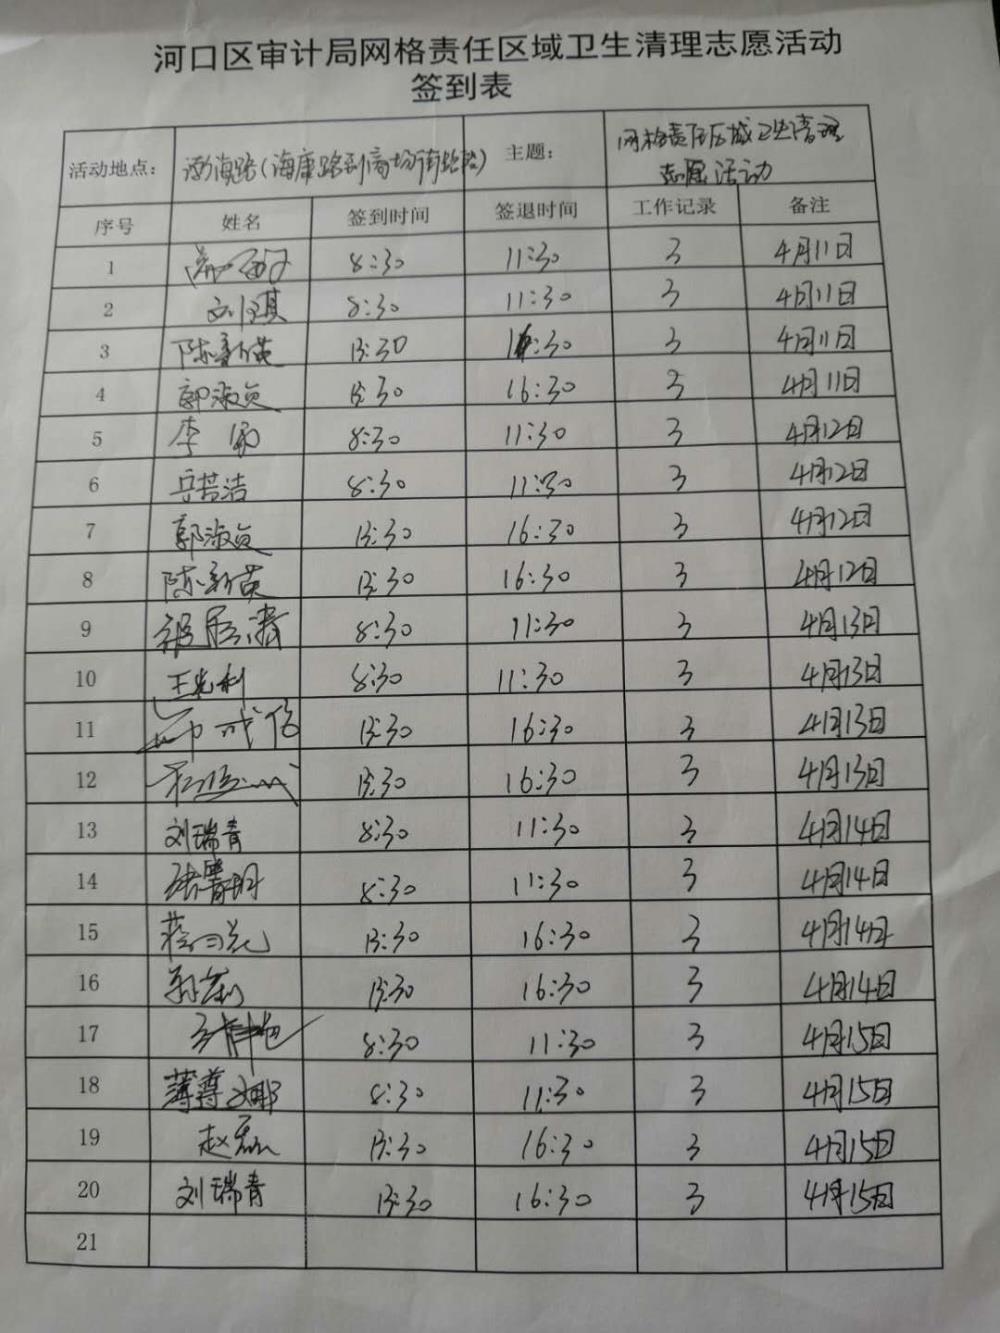 河口区审计局网格责任区域卫生清理志愿活动
签到表
活动地点： 渤海路(海康路到商场街路段) 主题： 网格责任区域卫生清理
志愿活动
序号 姓名 签到时间 签退时间 工作记录 备注
1 8:30 11:30 3 4月11日
2 刘琪 8:30 11:30 3 4月11日
3 陈新英 13:30 16:30 3 4月11日
4 郭淑贞 13:30 16:30 3 4月11日
5 李 8:30 11:30 3 4月12日
6 岳若洁 8:30 11:30 3 4月12日
7 郭淑贞 13:30 16:30 3 4月12日
8 陈新英 13:30 16:30 3 4月12日
9 8:30 11:30 3 4月13日
10 王志利 8:30 11:30 3 4月13日
11 13:30 16:30 3 4月13日
12 13:30 16:30 3 4月13日
13 刘瑞青 8:30 11:30 3 4月14日
14 8:30 11:30 3 4月14日
15 13:30 16:30 3 4月14日
16 13:30 16:30 3 4月14日
17 8:30 11:30 3 4月15日
18 薄尊 8:30 11:30 3 4月15日
19 赵磊 13:30 16:30 3 4月15日
20 刘瑞青 13:30 16:30 3 4月15日
21